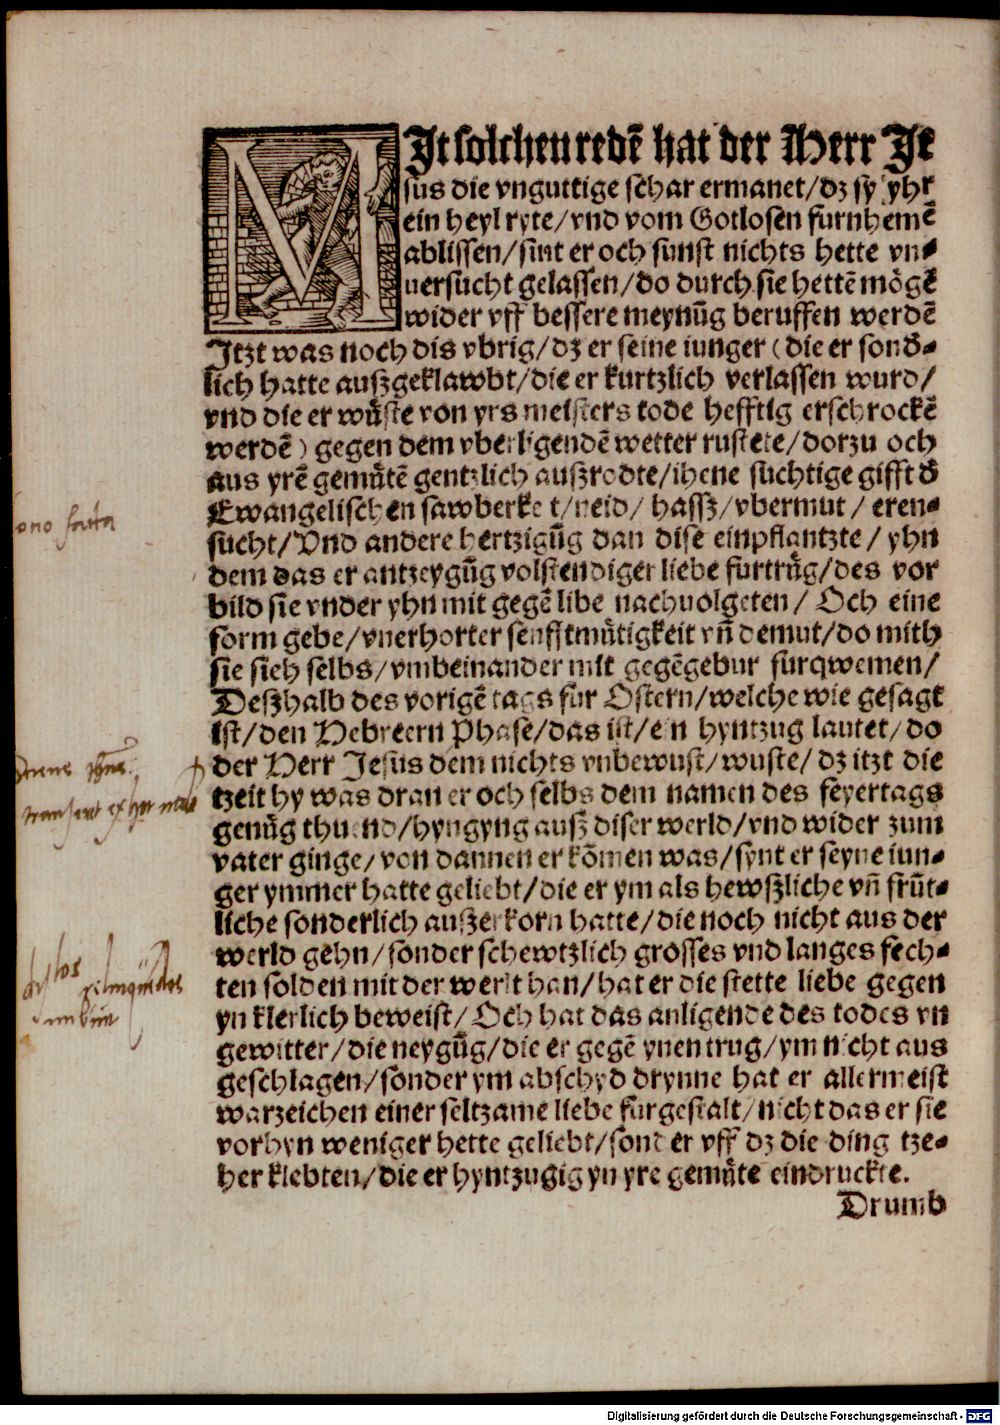 MJt solchen redẽ hat der Herr Je
sus die vnguttige schar ermanet/dz sy yhr
ein heyl ryte/vnd vom Gotlosen furnhemẽ
ablissen/sint er och sunst nichts hette vn⸗
uersucht gelassen/do durch sie hettẽ mögẽ
wider vff bessere meynũg beruffen werdẽ
Jtzt was noch dis vbrig/dz er seine iunger (die er sond⸗
lich hatte auszgeklawbt/die er kurtzlich verlassen wurd/
vnd die er wůste von yrs meisters tode hefftig erschrockẽ
werdẽ) gegen dem vberligendẽ wetter rustete/dorzu och
aus yrẽ gemůtẽ gentzlich auszrodte/ihene suchtige gifft d
Ewangelischen sawberke t/neid/ hassz/vbermut/ eren⸗
sucht/Vnd andere hertzigũg dan dise einpflantzte/ yhn
dem das er antzeygũg volstendiger liebe furtrůg/des vor
bild sie vnder yhn mit gegẽ libe nachuolgeten/ Och eine
form gebe/vnerhorter senfftmůtigkeit vñ demut/do mith
sie sich selbs/vmbeinander mit gegẽgebur furqwemen/
Deszhalb des vorigẽ tags fur Ostern/welche wie gesagt
ist/den Hebreern Phase/das ist/ein hyntzug lautet/do
der Herr Jesus dem nichts vnbewust/wuste/dz itzt die
tzeit hy was dran er och selbs dem namen des feyertags
genůg thuend/hyngyng ausz diser werld/vnd wider zum
vater ginge/von dannen er kõmen was/synt er seyne iun⸗
ger ymmer hatte geliebt/die er ym als hewszliche vñ frũt⸗
liche sonderlich auszerkorn hatte/die noch nicht aus der
werld gehn/sonder schewtzlich grosses vnd langes fech⸗
ten solden mit der werlt han/hat er die stette liebe gegen
yn klerlich beweist/Och hat das anligende des todes vn
gewitter/die neygũg/die er gegẽ ynen trug/ym nicht aus
geschlagen/sonder ym abschyd drynne hat er allermeist
warzeichen einer seltzame liebe furgestalt/nicht das er sie
vorhyn weniger hette geliebt/sonder vff dz die ding tze⸗
her klebten/die er hyntzugig yn yre gemůte eindruckte.
Drumb
Digitalisierung gefördert durch die Deutsche Forschungsgemeinschaft - DFG